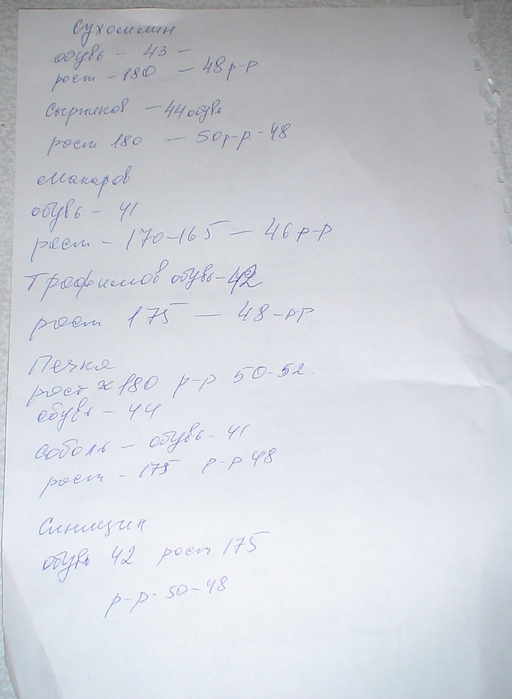 Сухомлин
обувь - 43 -
рост - 180 - 48 р-р
Сырников - 44 обувь
рост 180 - 50 р-р - 48
Макаров
обувь - 41
рост - 170-165 - 46 р-р
Трофимов обувь - 42
рост 175 - 48 - рр
Печка
рост 180 р-р 50-52.
обувь - 44
Соболь - обувь - 41
рост - 175 р-р 48
Синицин
обувь 42 рост 175
р-р - 50-48